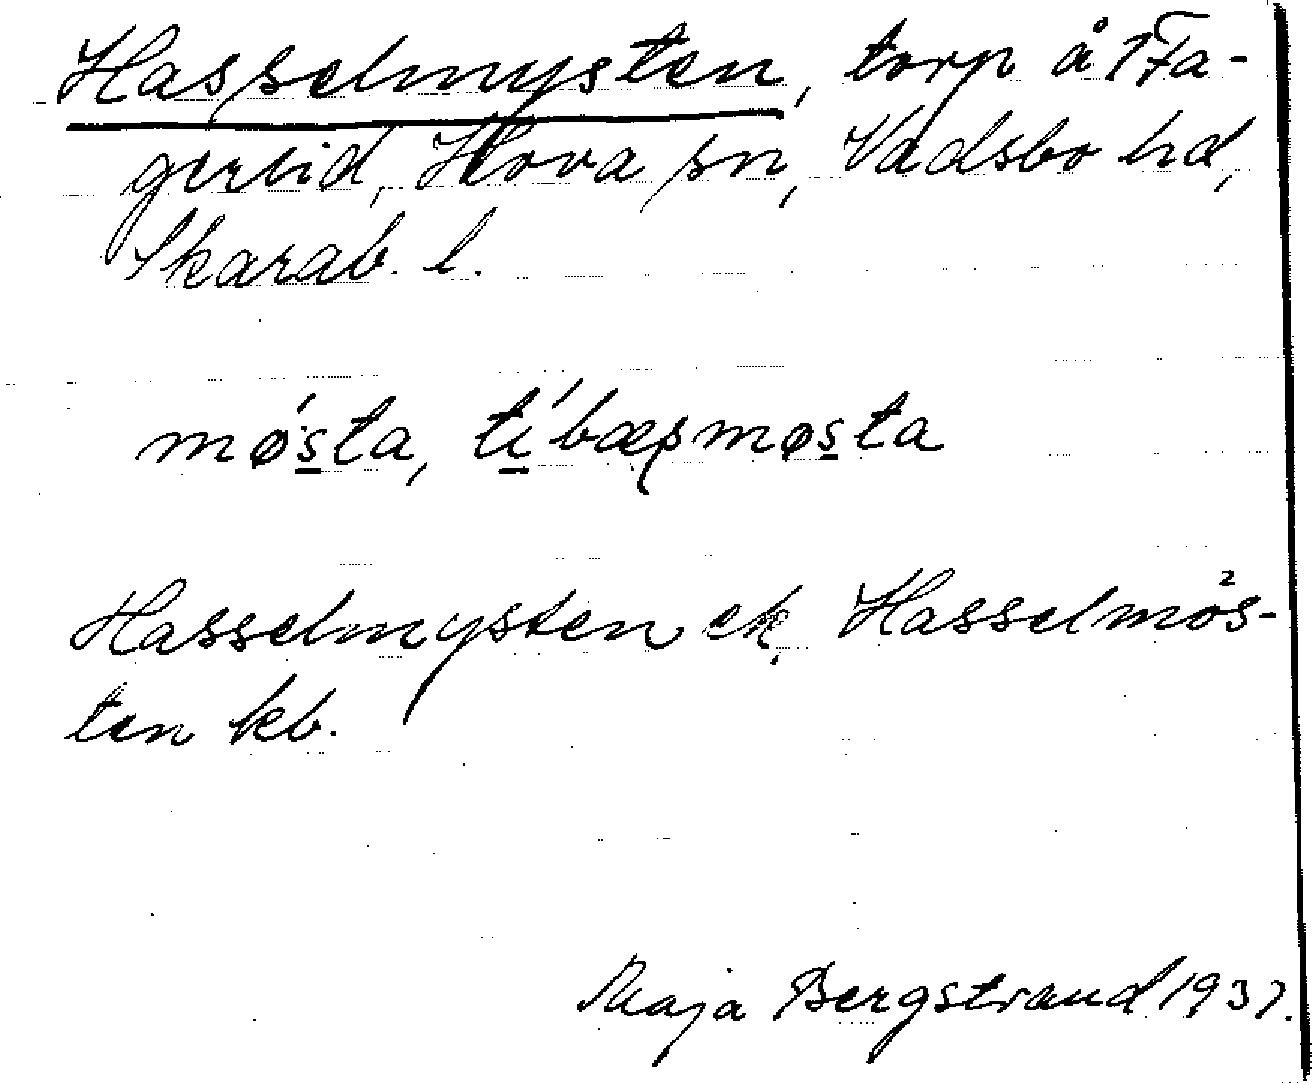 Hasselmysten, torp å 1 Fa-
gerlid, Hova sn, Vadsbo hd,
Skarab. l.
mǿsta, tíbæsmøsta
Hasselmysten ek, Hasselmös-
ten kb.
Maja Bergstrand 1937.